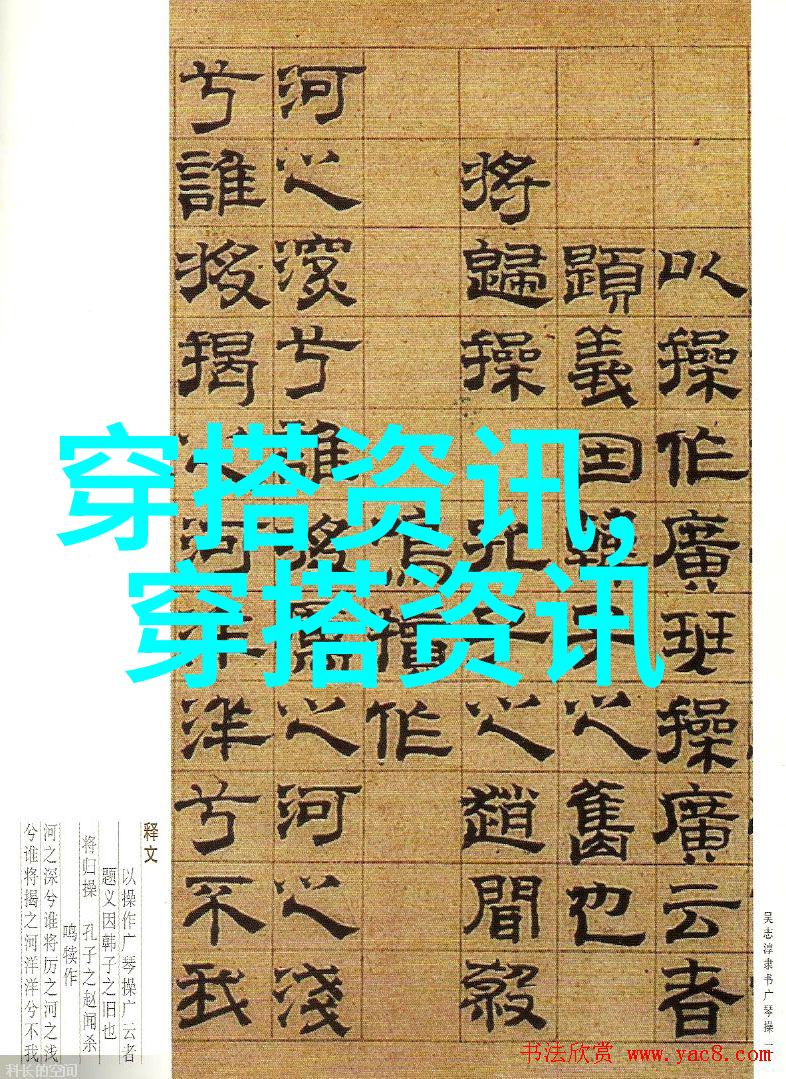 以操作廣琴操廣云者
題義因韓子之舊也
將歸操孔子之趙聞殺
鳴犢作
河之深兮誰將厲之河之淺
兮誰將揭之河洋洋兮不我
穿搭资讯,
穿搭资讯
释文
以操作广琴操广云者
题义因韩子之旧也
将归操 孔子之赵闻杀
鸣犊作
河之深兮谁将厉之河之浅
兮谁将揭之河洋洋兮不我
吴志淳隶书广琴操
书法欣赏 www.yac8.com
科长的空间